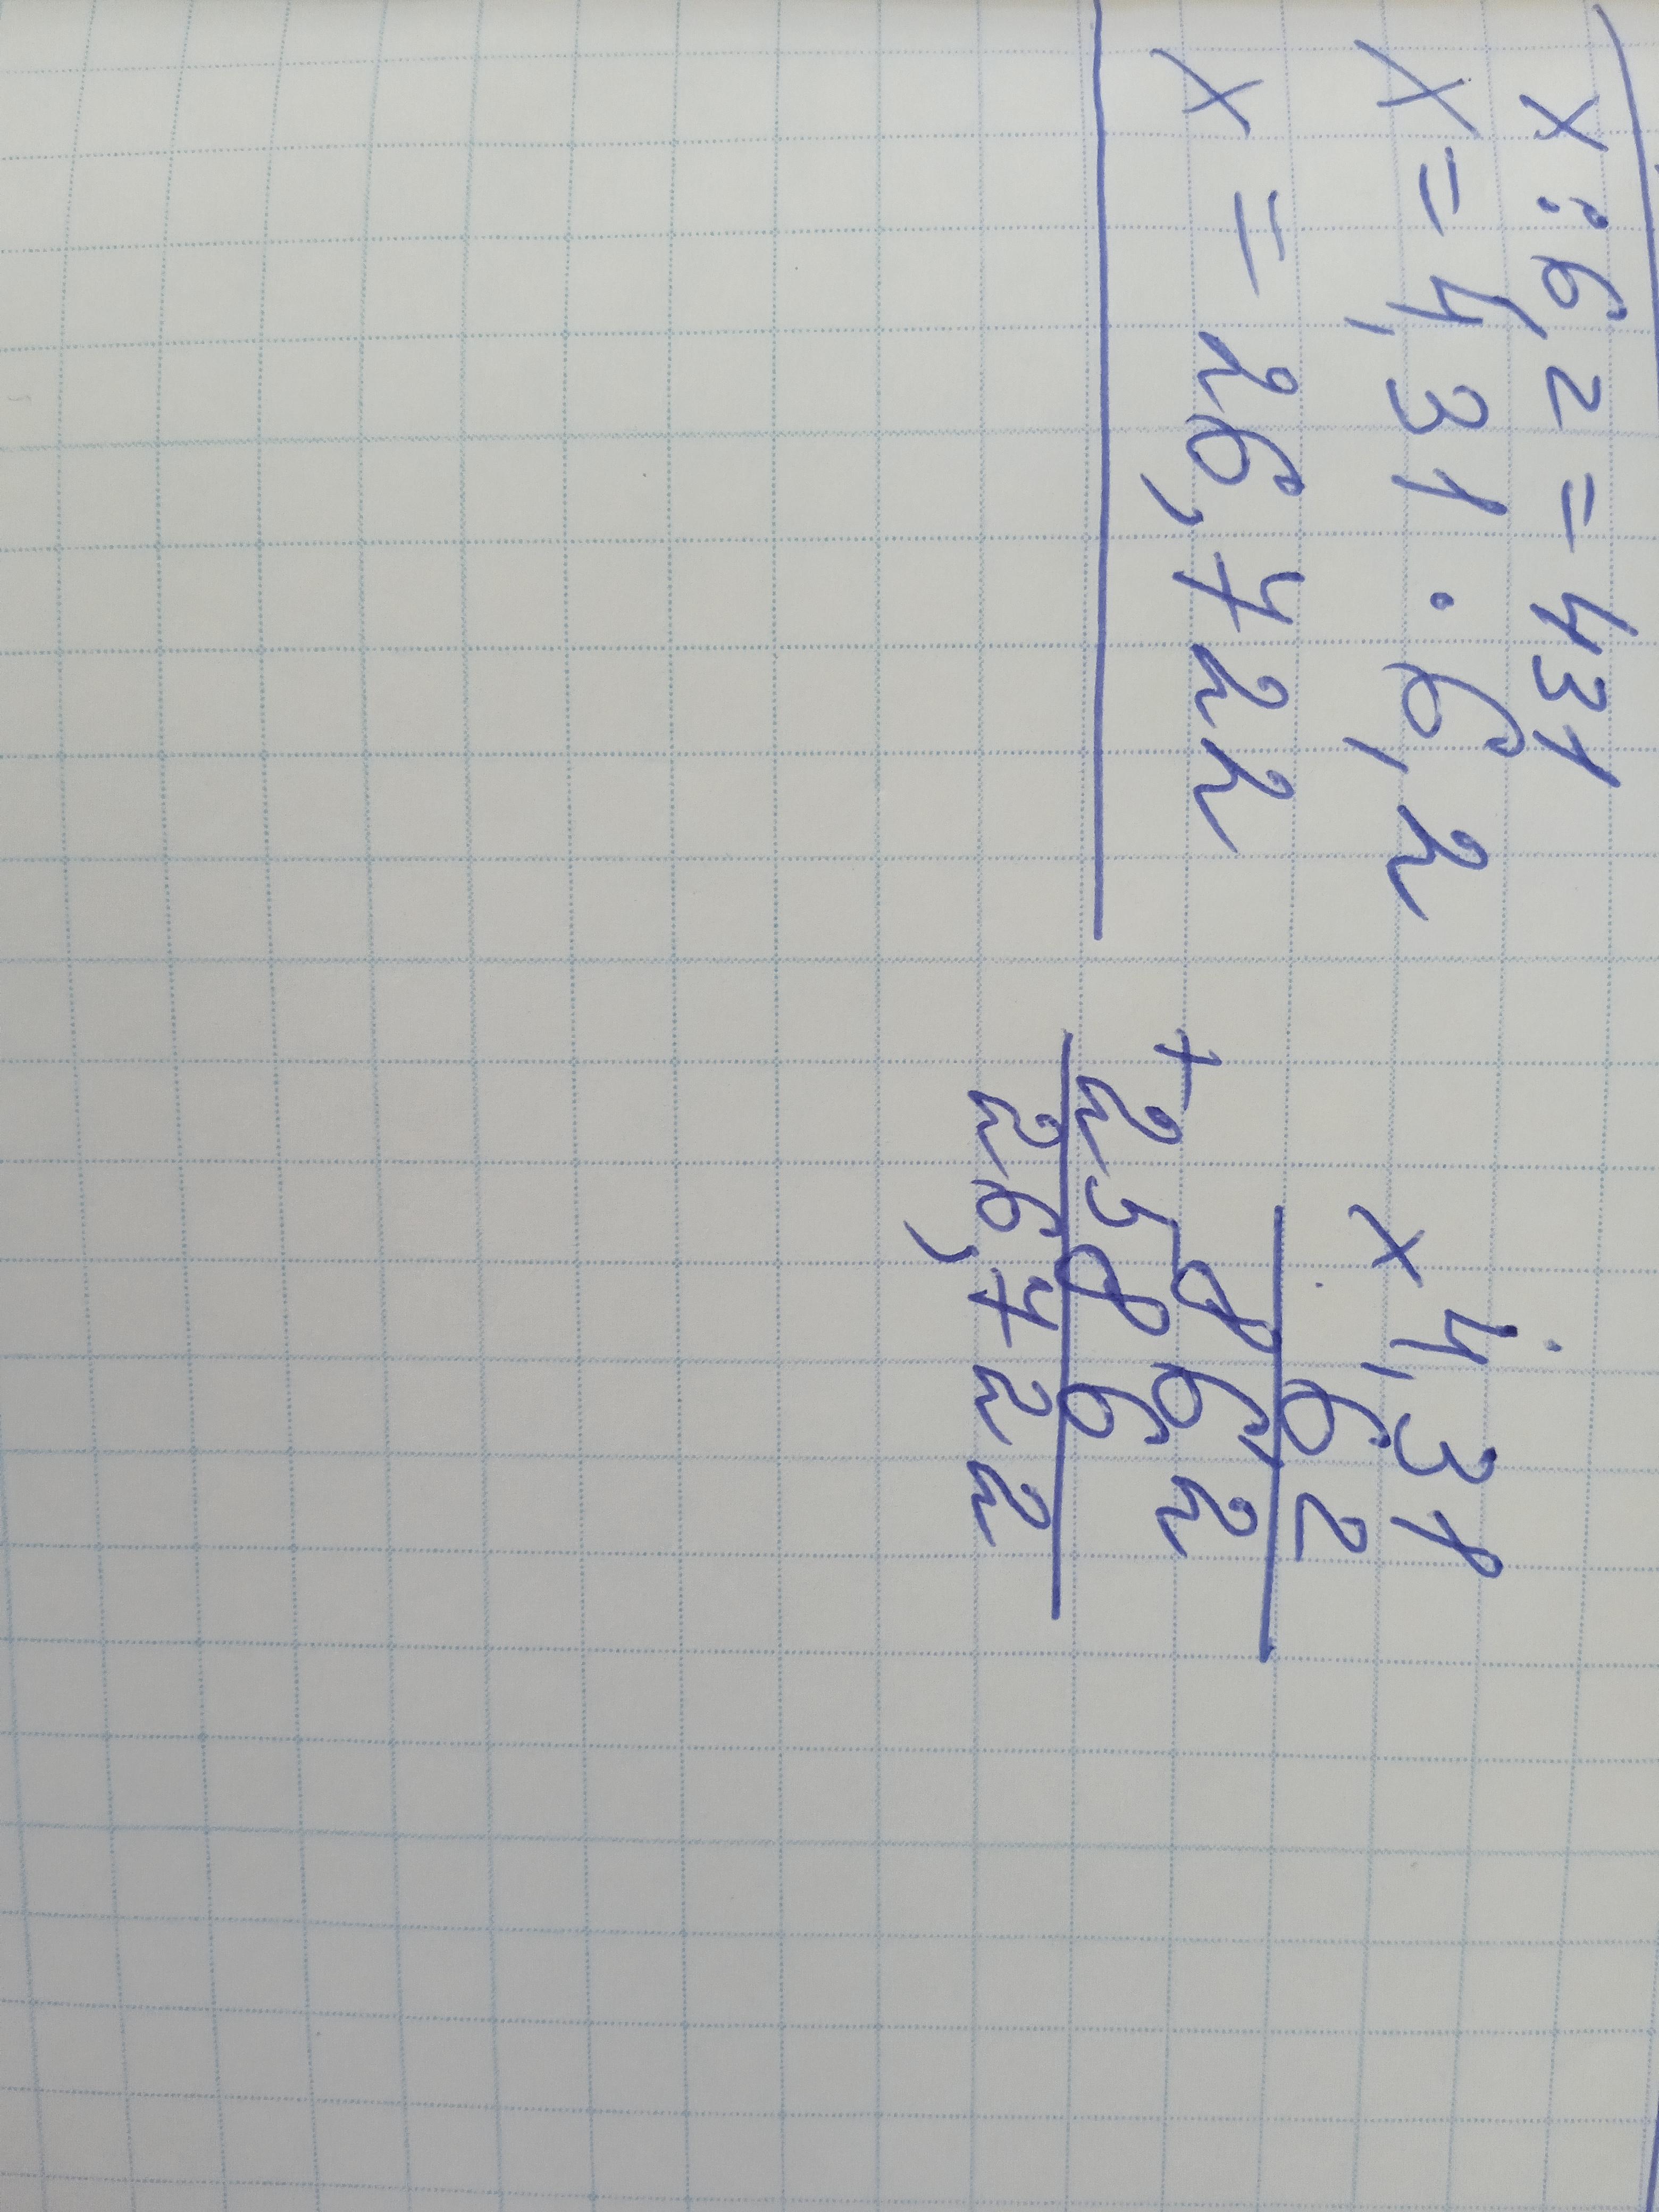 x : 6,2 = 431
x = 4,31 · 6,2
x = 26,722
× 4,31
6 2
8 6 2
+ 2 5 8 6
2 6,7 2 2